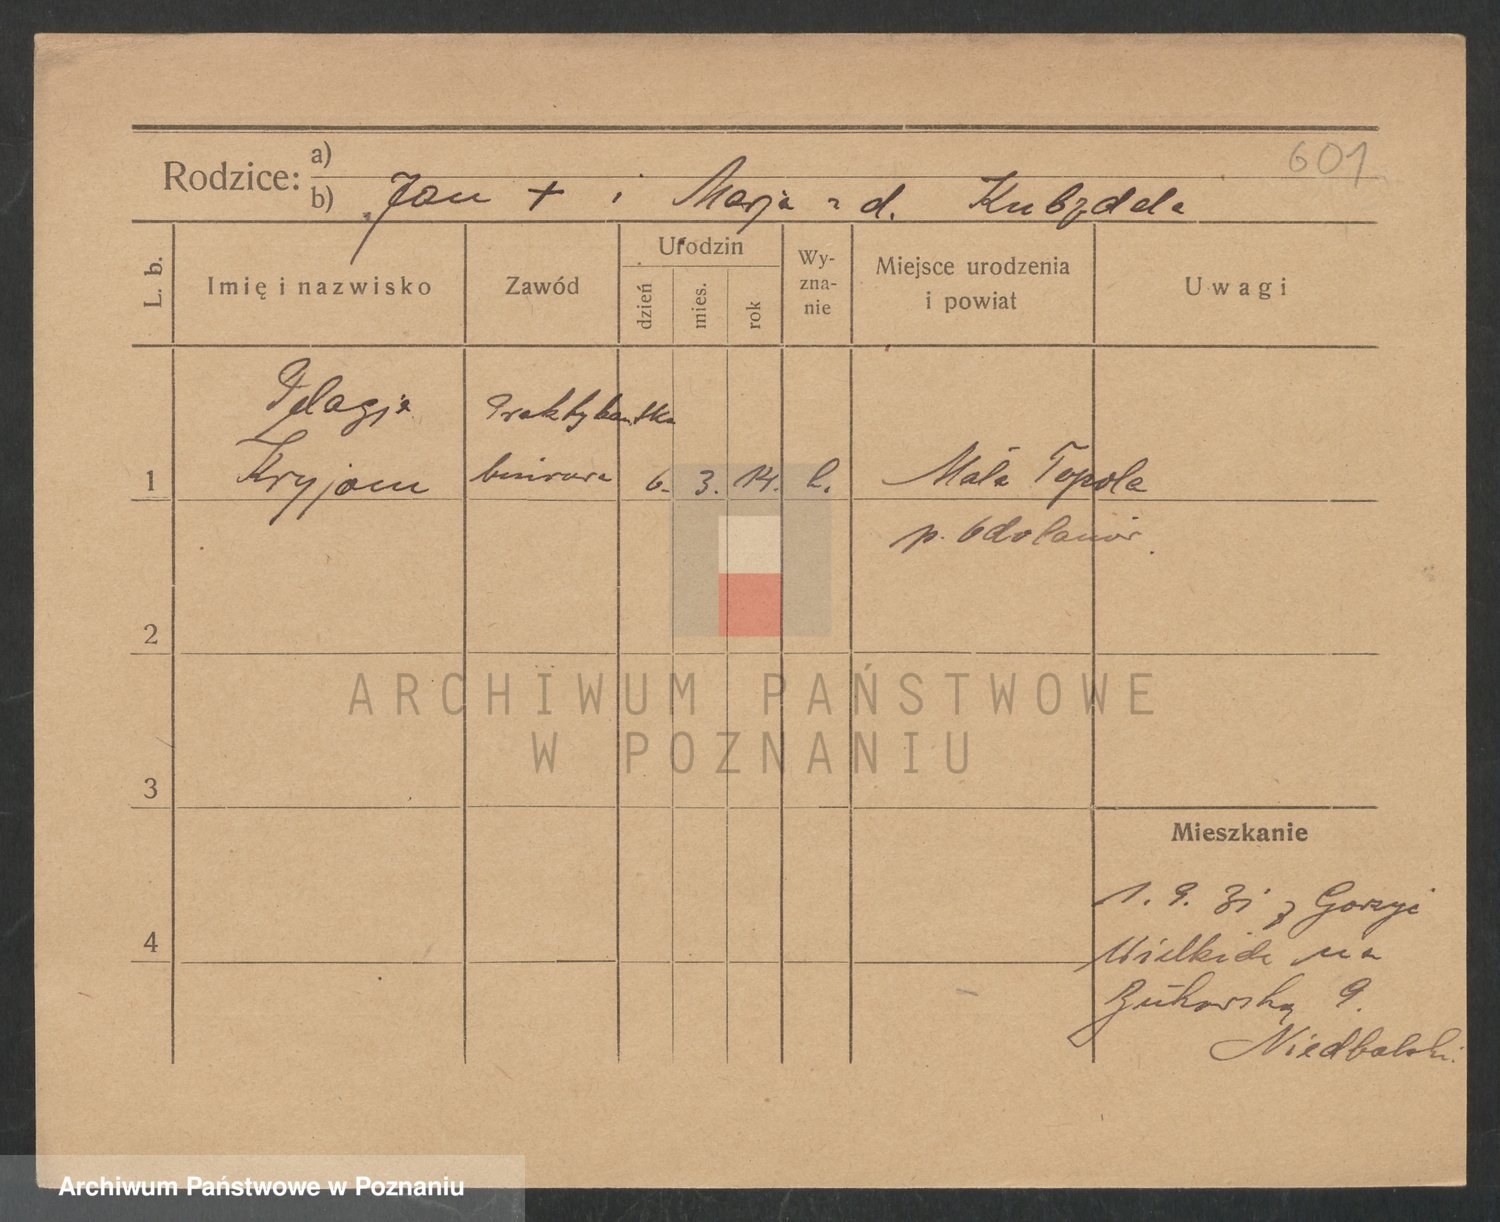 601
Rodzice: a)
b) Jan + i Marja z d. Kubzdela
L. b.
Imię i nazwisko
Zawód
Urodzin
dzień
mies.
rok
Wy-
zna-
nie
Miejsce urodzenia
i powiat
Uwagi
Pelagja
Praktykantka
1 Kryjom biurowa 6. 3. 14. k. Mała Topola
p. Odolanów.
2
3
4
ARCHIWUM PAŃSTWOWE
W POZNANIU
Mieszkanie
1. 9. 31 z Gorzyc
Wielkich na
Żukowską 9.
Niedbalski.
Archiwum Państwowe w Poznaniu